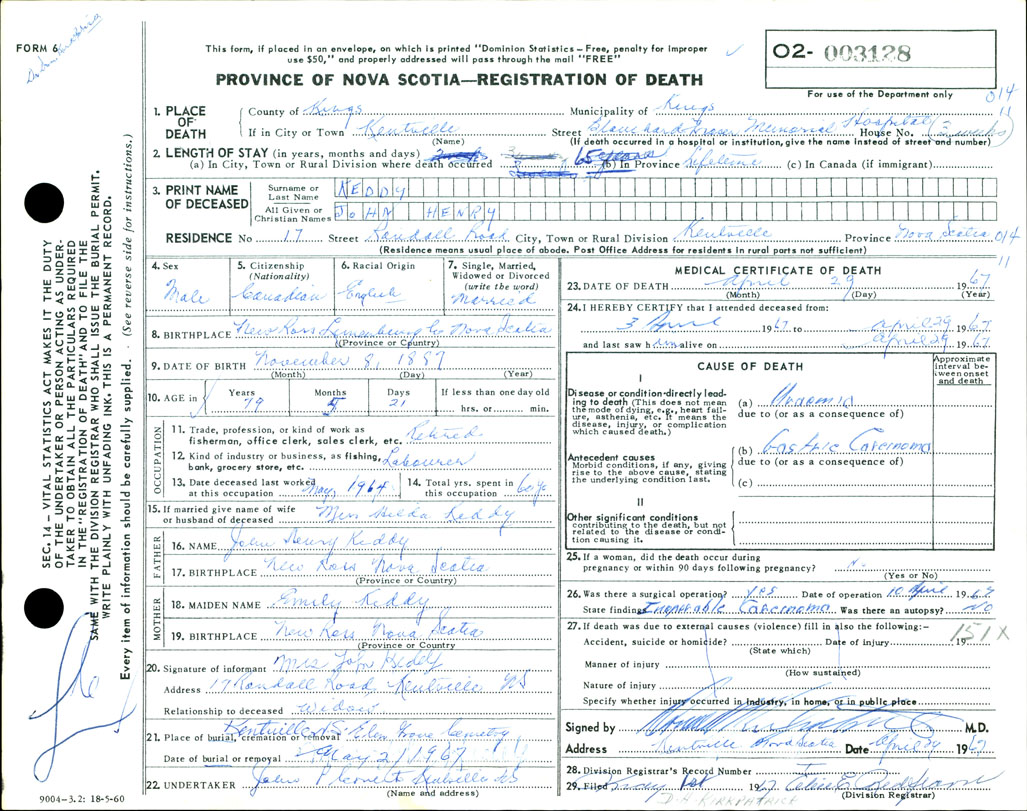 FORM 6
This form, if placed in an envelope, on which is printed "Dominion Statistics – Free, penalty for improper
use $50," and properly addressed will pass through the mail "FREE"
PROVINCE OF NOVA SCOTIA—REGISTRATION OF DEATH
O2- 003128
For use of the Department only
014
11
1. PLACE OF DEATH
County of Kings Municipality of Kings
If in City or Town Kentville Street Blanchard Fraser Memorial Hospital House No. (3 weeks)
(Name) (If death occurred in a hospital or institution, give name instead of street and number)
2. LENGTH OF STAY (in years, months and days)
(a) In City, Town or Rural Division where death occurred 65 years (b) In Province lifetime (c) In Canada (if immigrant)
3. PRINT NAME OF DECEASED
Surname or Last Name KEDDY
All Given or Christian Names JOHN HENRY
RESIDENCE No 17 Street Randall Road City, Town or Rural Division Kentville Province Nova Scotia 014
11
(Residence means usual place of abode. Post Office Address for residents in rural parts not sufficient)
4. Sex Male
5. Citizenship (Nationality) Canadian
6. Racial Origin English
7. Single, Married, Widowed or Divorced (write the word) Married
8. BIRTHPLACE New Ross Lunenburg Co Nova Scotia
(Province or Country)
9. DATE OF BIRTH November 8, 1887
(Month) (Day) (Year)
10. AGE in Years 79 Months 5 Days 21 If less than one day old hrs. or min.
OCCUPATION
11. Trade, profession, or kind of work as fisherman, office clerk, sales clerk, etc. Retired
12. Kind of industry or business, as fishing, bank, grocery store, etc. Labourer
13. Date deceased last worked at this occupation May, 1964 14. Total yrs. spent in this occupation 60 yrs
15. If married give name of wife or husband of deceased Mrs Hilda Keddy
FATHER
16. NAME John Henry Keddy
17. BIRTHPLACE New Ross Nova Scotia
(Province or Country)
MOTHER
18. MAIDEN NAME Emily Keddy
19. BIRTHPLACE New Ross Nova Scotia
(Province or Country)
20. Signature of informant Mrs John Keddy
Address 17 Randall Road, Kentville NS
Relationship to deceased widow
21. Place of burial, cremation or removal Kentville NS Elm Grove Cemetry
Date of burial or removal May 2/1967
22. UNDERTAKER Kentville NS
(Name and address)
MEDICAL CERTIFICATE OF DEATH
23. DATE OF DEATH April 29 1967
(Month) (Day) (Year)
24. I HEREBY CERTIFY that I attended deceased from:
3 April 1967 to April 29 1967
and last saw him alive on April 29 1967
CAUSE OF DEATH
Approximate interval between onset and death
I
Disease or condition directly leading to death (This does not mean the mode of dying, e.g., heart failure, asthenia, etc. It means the disease, injury, or complication which caused death.)
(a) Uraemia
due to (or as a consequence of)
Antecedent causes
Morbid conditions, if any, giving rise to the above cause, stating the underlying condition last.
(b) Gastric Carcinoma
due to (or as a consequence of)
(c)
II
Other significant conditions
contributing to the death, but not related to the disease or condition causing it.
25. If a woman, did the death occur during
pregnancy or within 90 days following pregnancy?
(Yes or No)
26. Was there a surgical operation? yes Date of operation 10 April 1967
State findings Inoperable Carcinoma Was there an autopsy? NO
27. If death was due to external causes (violence) fill in also the following:-
151X
Accident, suicide or homicide? Date of injury 19
(State which)
Manner of injury
(How sustained)
Nature of injury
Specify whether injury occurred in Industry, in home, or in public place
Signed by M.D.
Address Kentville Nova Scotia Date April 29 1967
28. Division Registrar's Record Number
29. Filed May 1st 1967
(Division Registrar)
D. H. KIRKPATRICK
SEC. 14 – VITAL STATISTICS ACT MAKES IT THE DUTY
OF THE UNDERTAKER OR PERSON ACTING AS UNDER-
TAKER TO OBTAIN ALL THE PARTICULARS REQUIRED
IN THE "REGISTRATION OF DEATH" AND TO FILE THE
SAME WITH THE DIVISION REGISTRAR WHO SHALL ISSUE THE BURIAL PERMIT.
WRITE PLAINLY WITH UNFADING INK. THIS IS A PERMANENT RECORD.
Every item of information should be carefully supplied. (See reverse side for instructions.)
9004–3.2: 18-5-60